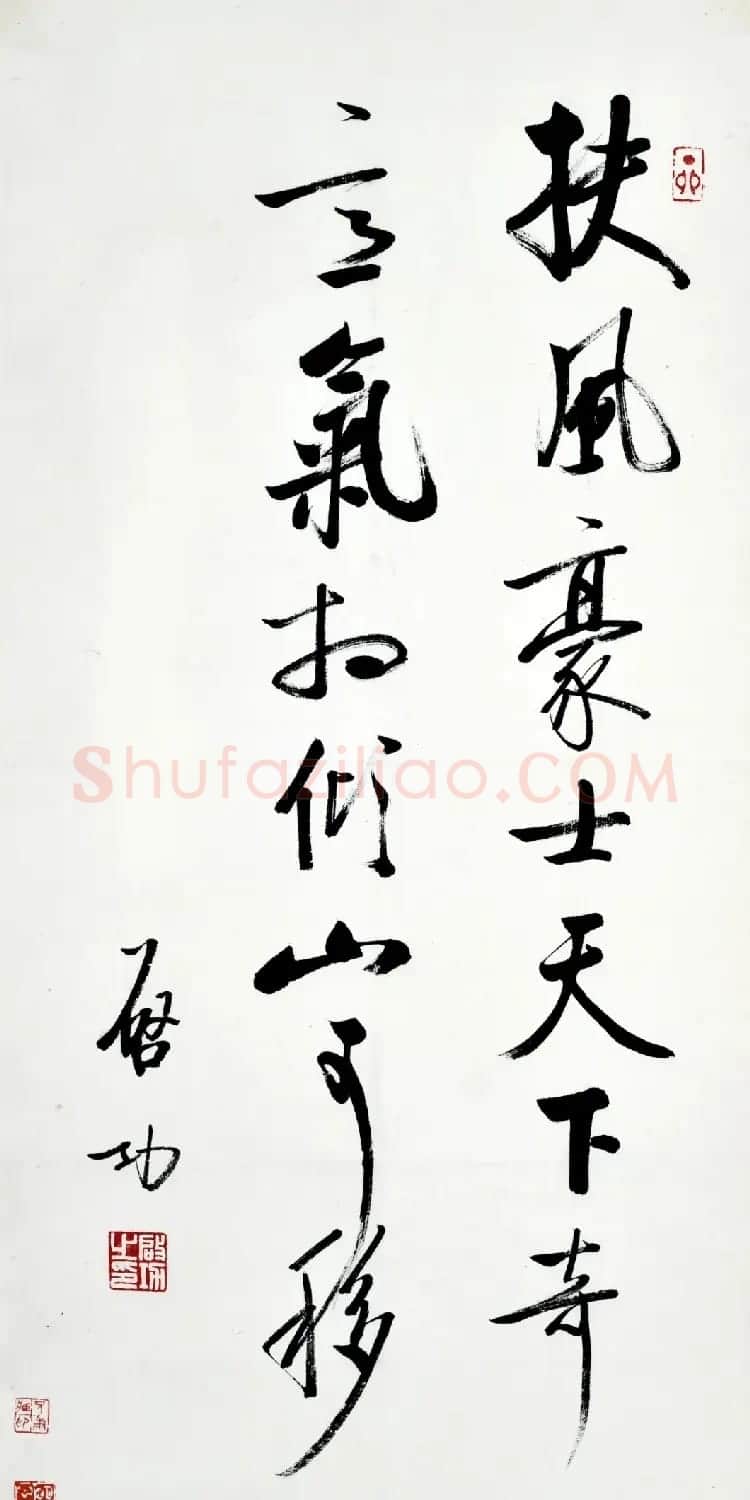 扶風豪士天下奇
意氣相傾山可移
啓功
啓功之印
Shufaziliao.COM